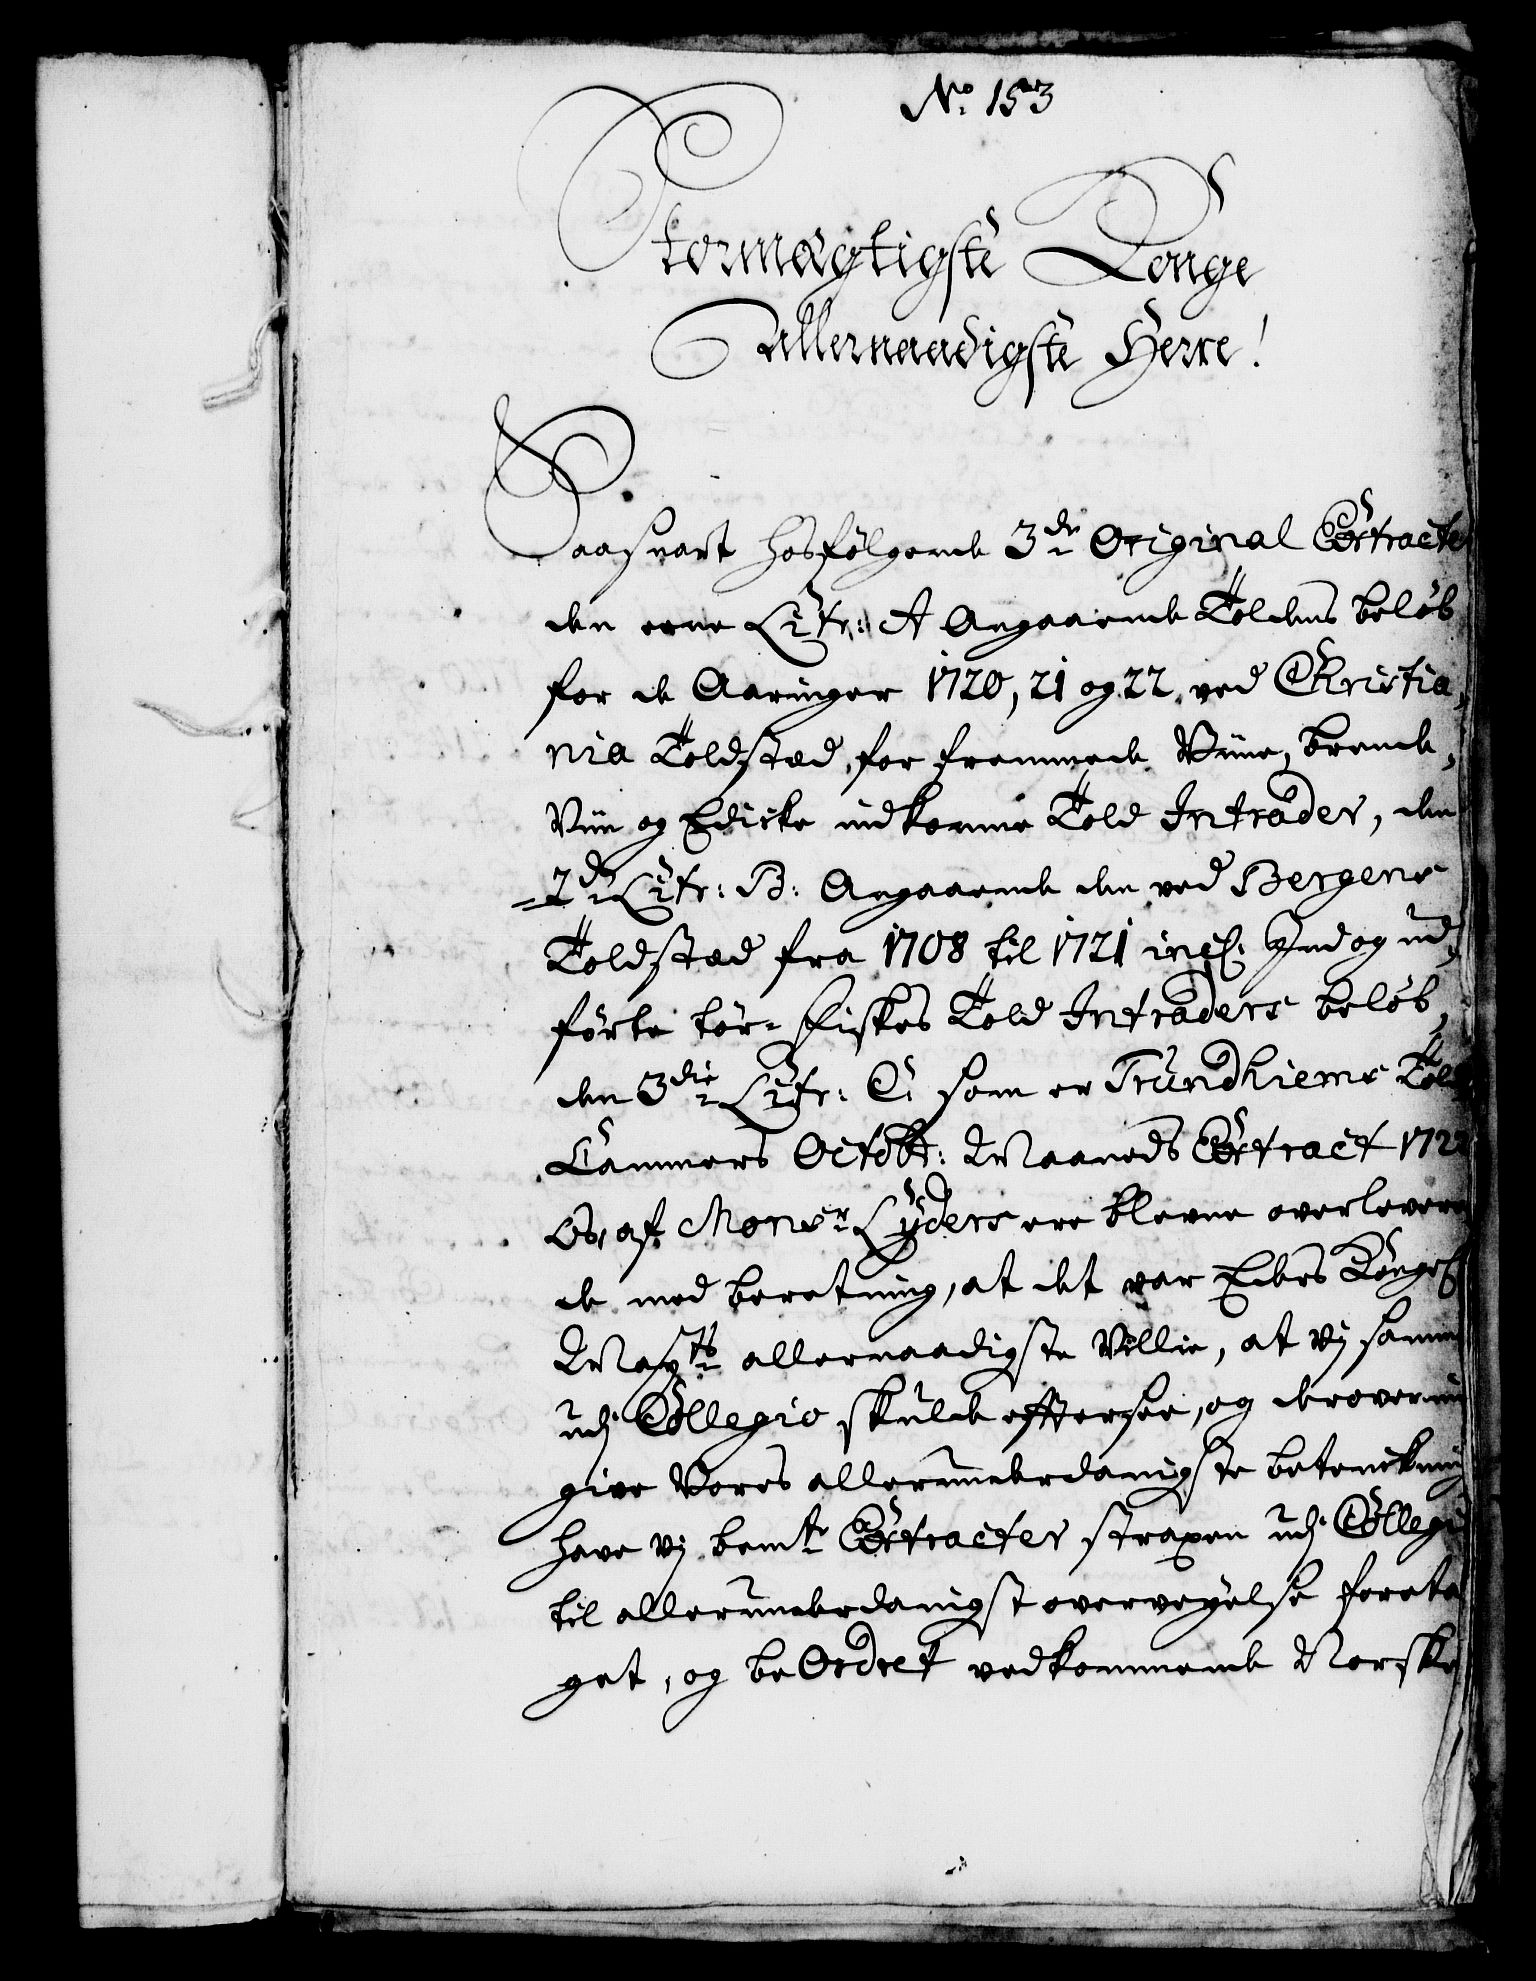 No. 153
Stormægtigste Konge
Allernaadigste Herre!
Saasnart hosfølgende 3de Original Extracte
den eene Litr: A Angaaende Toldens beløb
for de Aaringer 1720, 21 og 22 ved Christia,
nia Toldsted, for fremmede Viine, brende,
Viin og Edicke indkomne Told Intrader, den
2de Litr: B: Angaaende den ved Bergens
Toldsted fra 1708 til 1721 incl: Ind og ud,
førte tør-fiskes Told Intraders beløb,
den 3die Litr: C: som er Trundhiems Told
Cammers Octobr: Maaneds Extract 1722
Os, af Monsr Lyders ere blevne overlevere
de med beretning, at det var Eders Kongel
Maytts allernaadigste Villie, at vj samme
udj Collegio skulde effterse, og derover
give Vores allerunderdanigste betenckning
have vj bemte Extracter straxen udj Collegi
til allerunderdanigst overveyelse foreta
get, og beOrdret vedkommende Norske